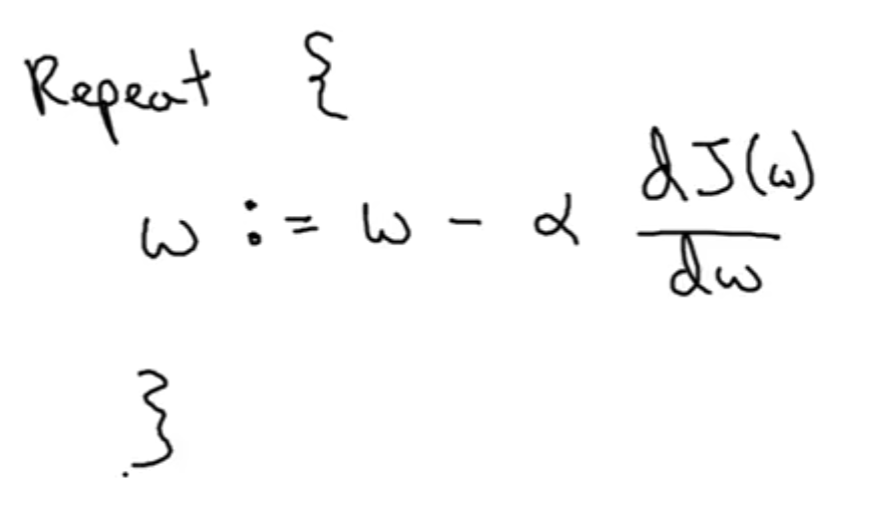 Repeat {
w := w - α dJ(w)/dw
}